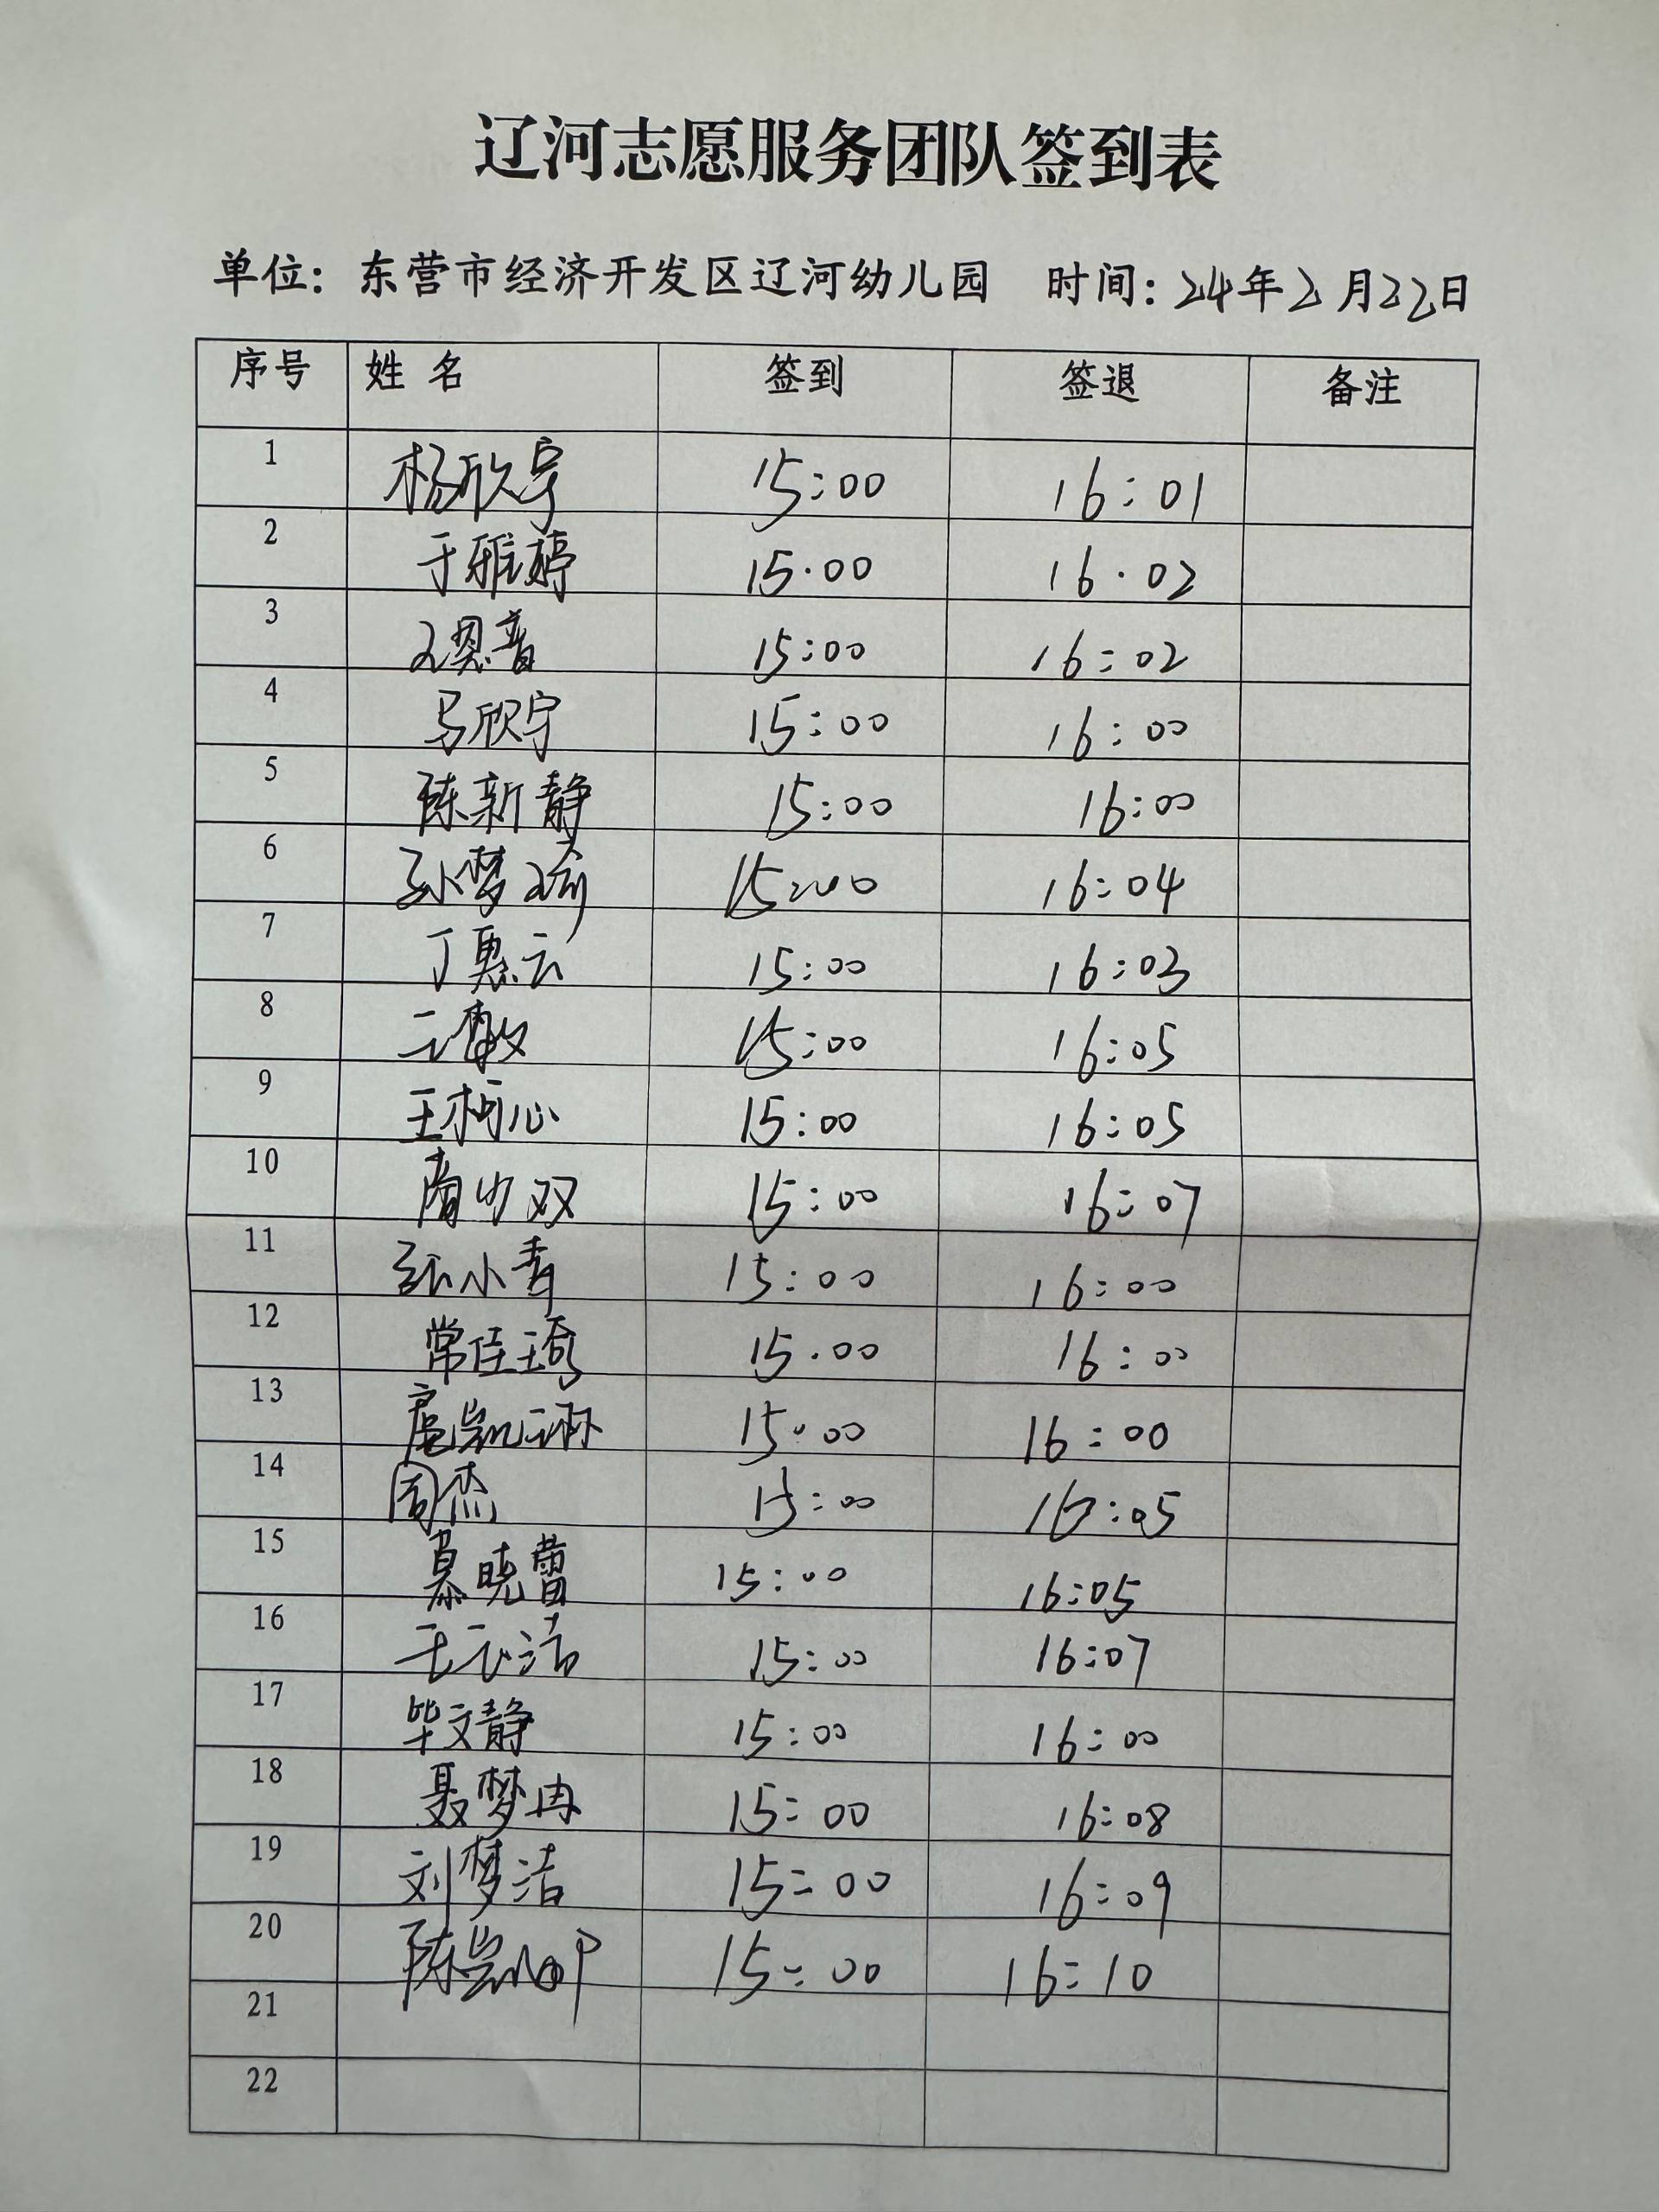 辽河志愿服务团队签到表
单位：东营市经济开发区辽河幼儿园 时间：24年2月22日
序号 姓 名 签到 签退 备注
1 杨欣宇 15:00 16:01
2 于雅婷 15·00 16·02
3 15:00 16:02
4 马欣宁 15:00 16:00
5 陈新静 15:00 16:00
6 孙梦瑜 15:00 16:04
7 丁惠云 15:00 16:03
8 王敏 15:00 16:05
9 王柯心 15:00 16:05
10 15:00 16:07
11 张小青 15:00 16:00
12 常佳琦 15·00 16:00
13 扈凯琳 15·00 16:00
14 周杰 15:00 16:05
15 綦晓蕾 15:00 16:05
16 15:00 16:07
17 毕文静 15:00 16:00
18 聂梦冉 15:00 16:08
19 刘梦洁 15:00 16:09
20 15:00 16:10
21
22